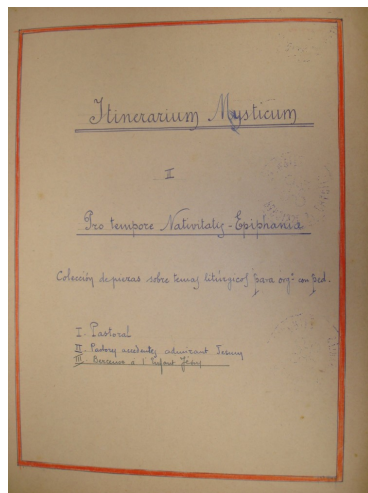 Itinerarium Mysticum
II
Pro tempore Nativitatis-Epiphania
Colección de piezas sobre temas litúrgicos para org° con ped.
I. Pastoral
II. Pastores accedentes admirant Jesum
III. Berceuse a l'Enfant Jésus